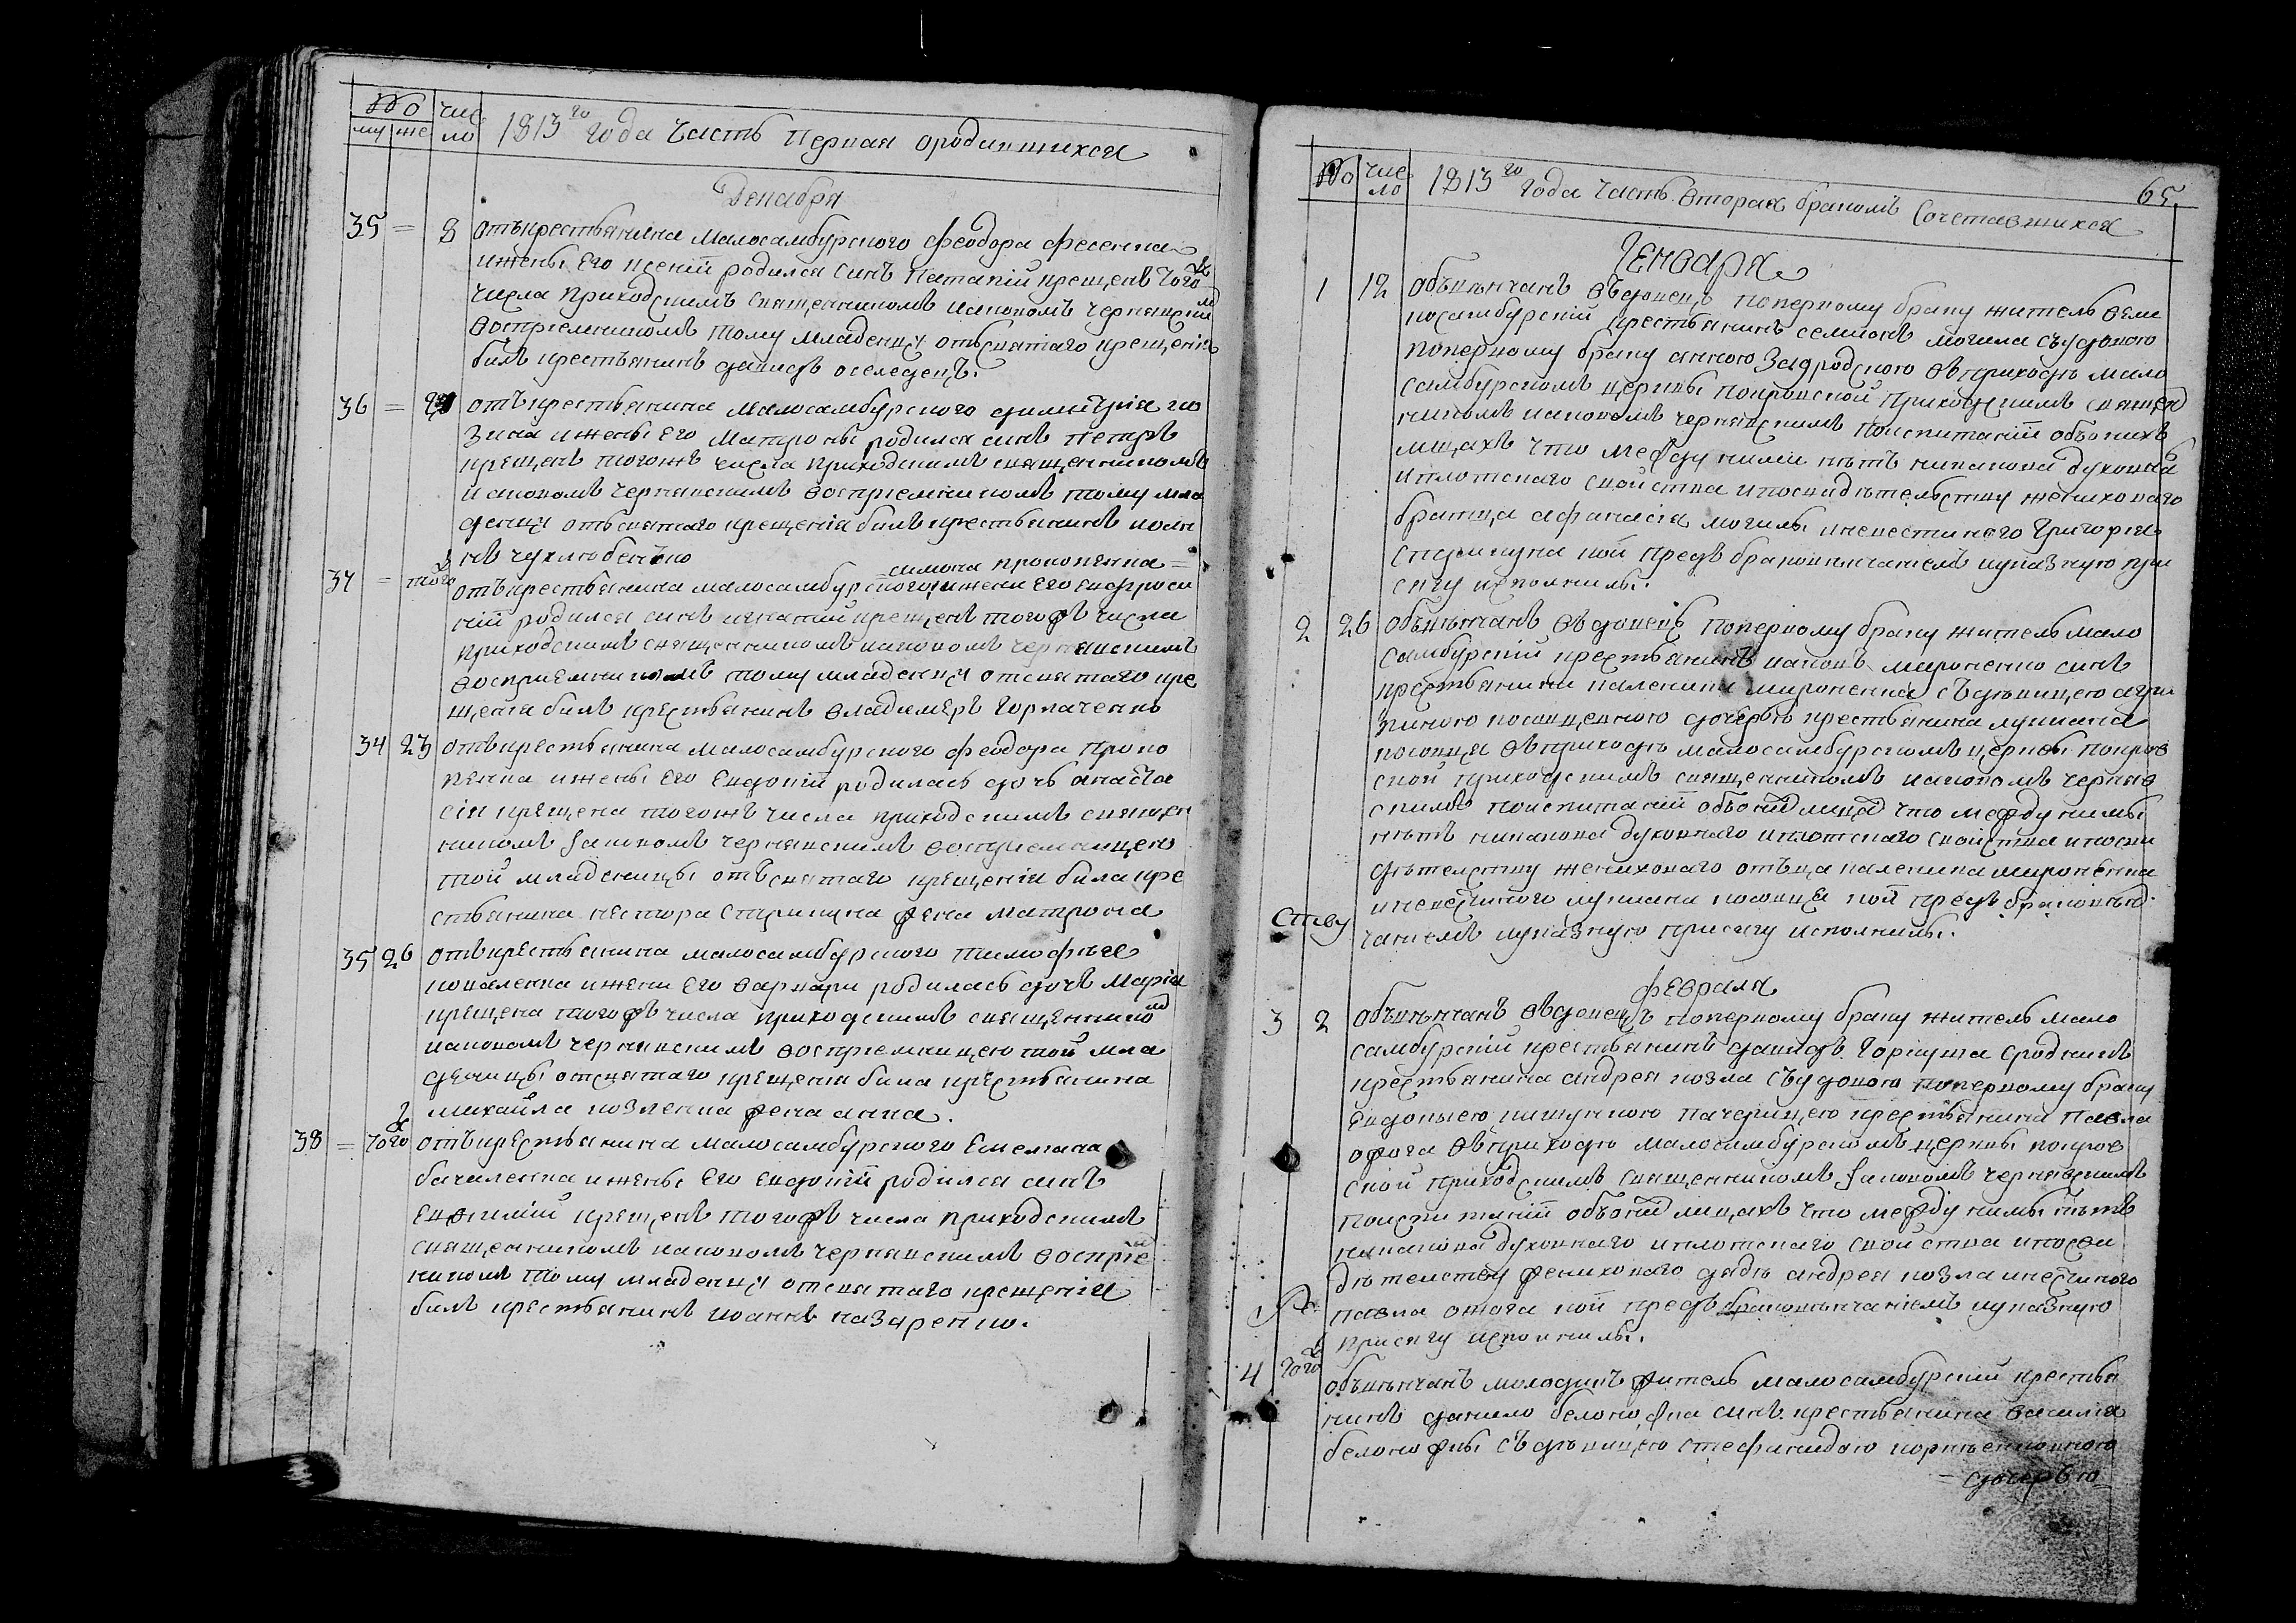 № чис
му же ло 1813го года Часть Первая о родившихся
Декабря
35 = 8 отъ крестьянина Малосамбурского Феодора Фесенка
и жены Его Ксении родился синъ Патапій крещенъ того ж
числа Приходскимъ священникомъ Иаковомъ Чернявским
восприемникомъ тому младенцу отъ святаго крещенія
билъ крестьянинъ давидъ оселедець.
36 = отъ крестьянина Малосамбурского димитрія
и жены Его Матроны родился синъ Петръ
крещенъ тогожъ числа приходскимъ священникомъ
Иаковомъ Чернявскимъ восприемникомъ тому мла
денцу отъ святаго крещенія билъ крестьянинъ
симона прокопенка =
37 = того ж отъ крестьянина малосамбурского и жени Его Евфроси
ніи родился синъ игнатий крещенъ тогожъ числа
приходскимъ священникомъ иаковомъ чернявскимъ
восприемникомъ тому младенцу от святаго кре
щенія билъ крестьянинъ владимеръ Горпаченко
34 23 отъ крестьянина малосамбурского Феодора Проко
пенка и жены Его Евдокіи родилась дочь анаста
сія крещена тогожъ числа приходскимъ священ
никомъ Iаковомъ Чернявскимъ восприемницею
той младеницы отъ святаго крещенія била кре
стьянина нестора Стрижуна жена Матрона
35 26 отъ крестьянина малосамбурского Тимофѣя
коваленка и жени Его варвари родилась дочь Марія
крещена тогожъ числа приходскимъ священником
иаковомъ чернявскимъ восприемницею той мла
деницы от святаго крещенія била крестьянина
Михайла козленка жена анна.
38 = того ж отъ крестьянина малосамбурского Емелиана
бачиленка и жены Его Евдокіи родился синъ
Евфимій крещенъ тогожъ числа приходскимъ
священникомъ иаковомъ чернявскимъ восприем
никомъ тому младенцу от святаго крещенія
билъ крестьянинъ иоаннъ назаренко.
№ чис
ло 1813го года Часть Вторая бракомъ Сочетавшихся 65.
Генваря
1 12 объвѣнчанъ вдовецъ по первому браку житель вели
косамбурскій крестьянинъ семионъ могила съ удовою
по первому браку анною в приходѣ мало
самбурскомъ церкви покровской приходскимъ священ
никомъ иаковомъ чернявскимъ по испитаніи объ онихъ
лицахъ что между ними нѣтъ никакова духовнаго
и плотскаго свойства и по свидѣтельству женихового
братца афанасія могилы и невестиного Григорія
Стрижуна кои предъ браковѣнчаніемъ и указную при
сягу исполнили.
2 26 объвѣнчанъ вдовецъ по первому браку житель мало
самбурскій крестьянинъ иаковъ мироненко синъ
крестьянина мироненка съ дѣвицею агри
пиною дочерью крестьянина лукиана
в приходѣ малосамбурскомъ церкви покров
ской приходскимъ священникомъ иаковомъ черняв
скимъ по испитаніи объ оних лицах что между ними
нѣтъ никакова духовнаго и плотскаго свойства и по сви
дѣтелству женихового отьца мироненка
и невестиного лукиана кои предъ браковѣн
ству чаніемъ и указную присягу исполнили.
Февраля
3 2 объвѣнчанъ вдовецъ по первому браку житель мало
самбурскій крестьянинъ давидъ сродникъ
крестьянина андрея козла съ удовою по первому браку
Евдокиею падчерицею крестьянина Павла
в приходѣ малосамбурскомъ церкви покров
ской приходскимъ священникомъ Iаковомъ чернявскимъ
по испитаніи объ оних лицахъ что между ними нѣтъ
никакова духовнаго и плотскаго свойства и по сви
дѣтелству женихового дядѣ андрея козла и нестиного
павла кои предъ браковѣнчаніемъ и указную
присягу исполнили.
4 того ж объвѣнчанъ молодикъ житель малосамбурский крестья
нинъ данило белоножка синъ крестьянина василия
белоножки съ дѣвицею стефанидою
= дочерью